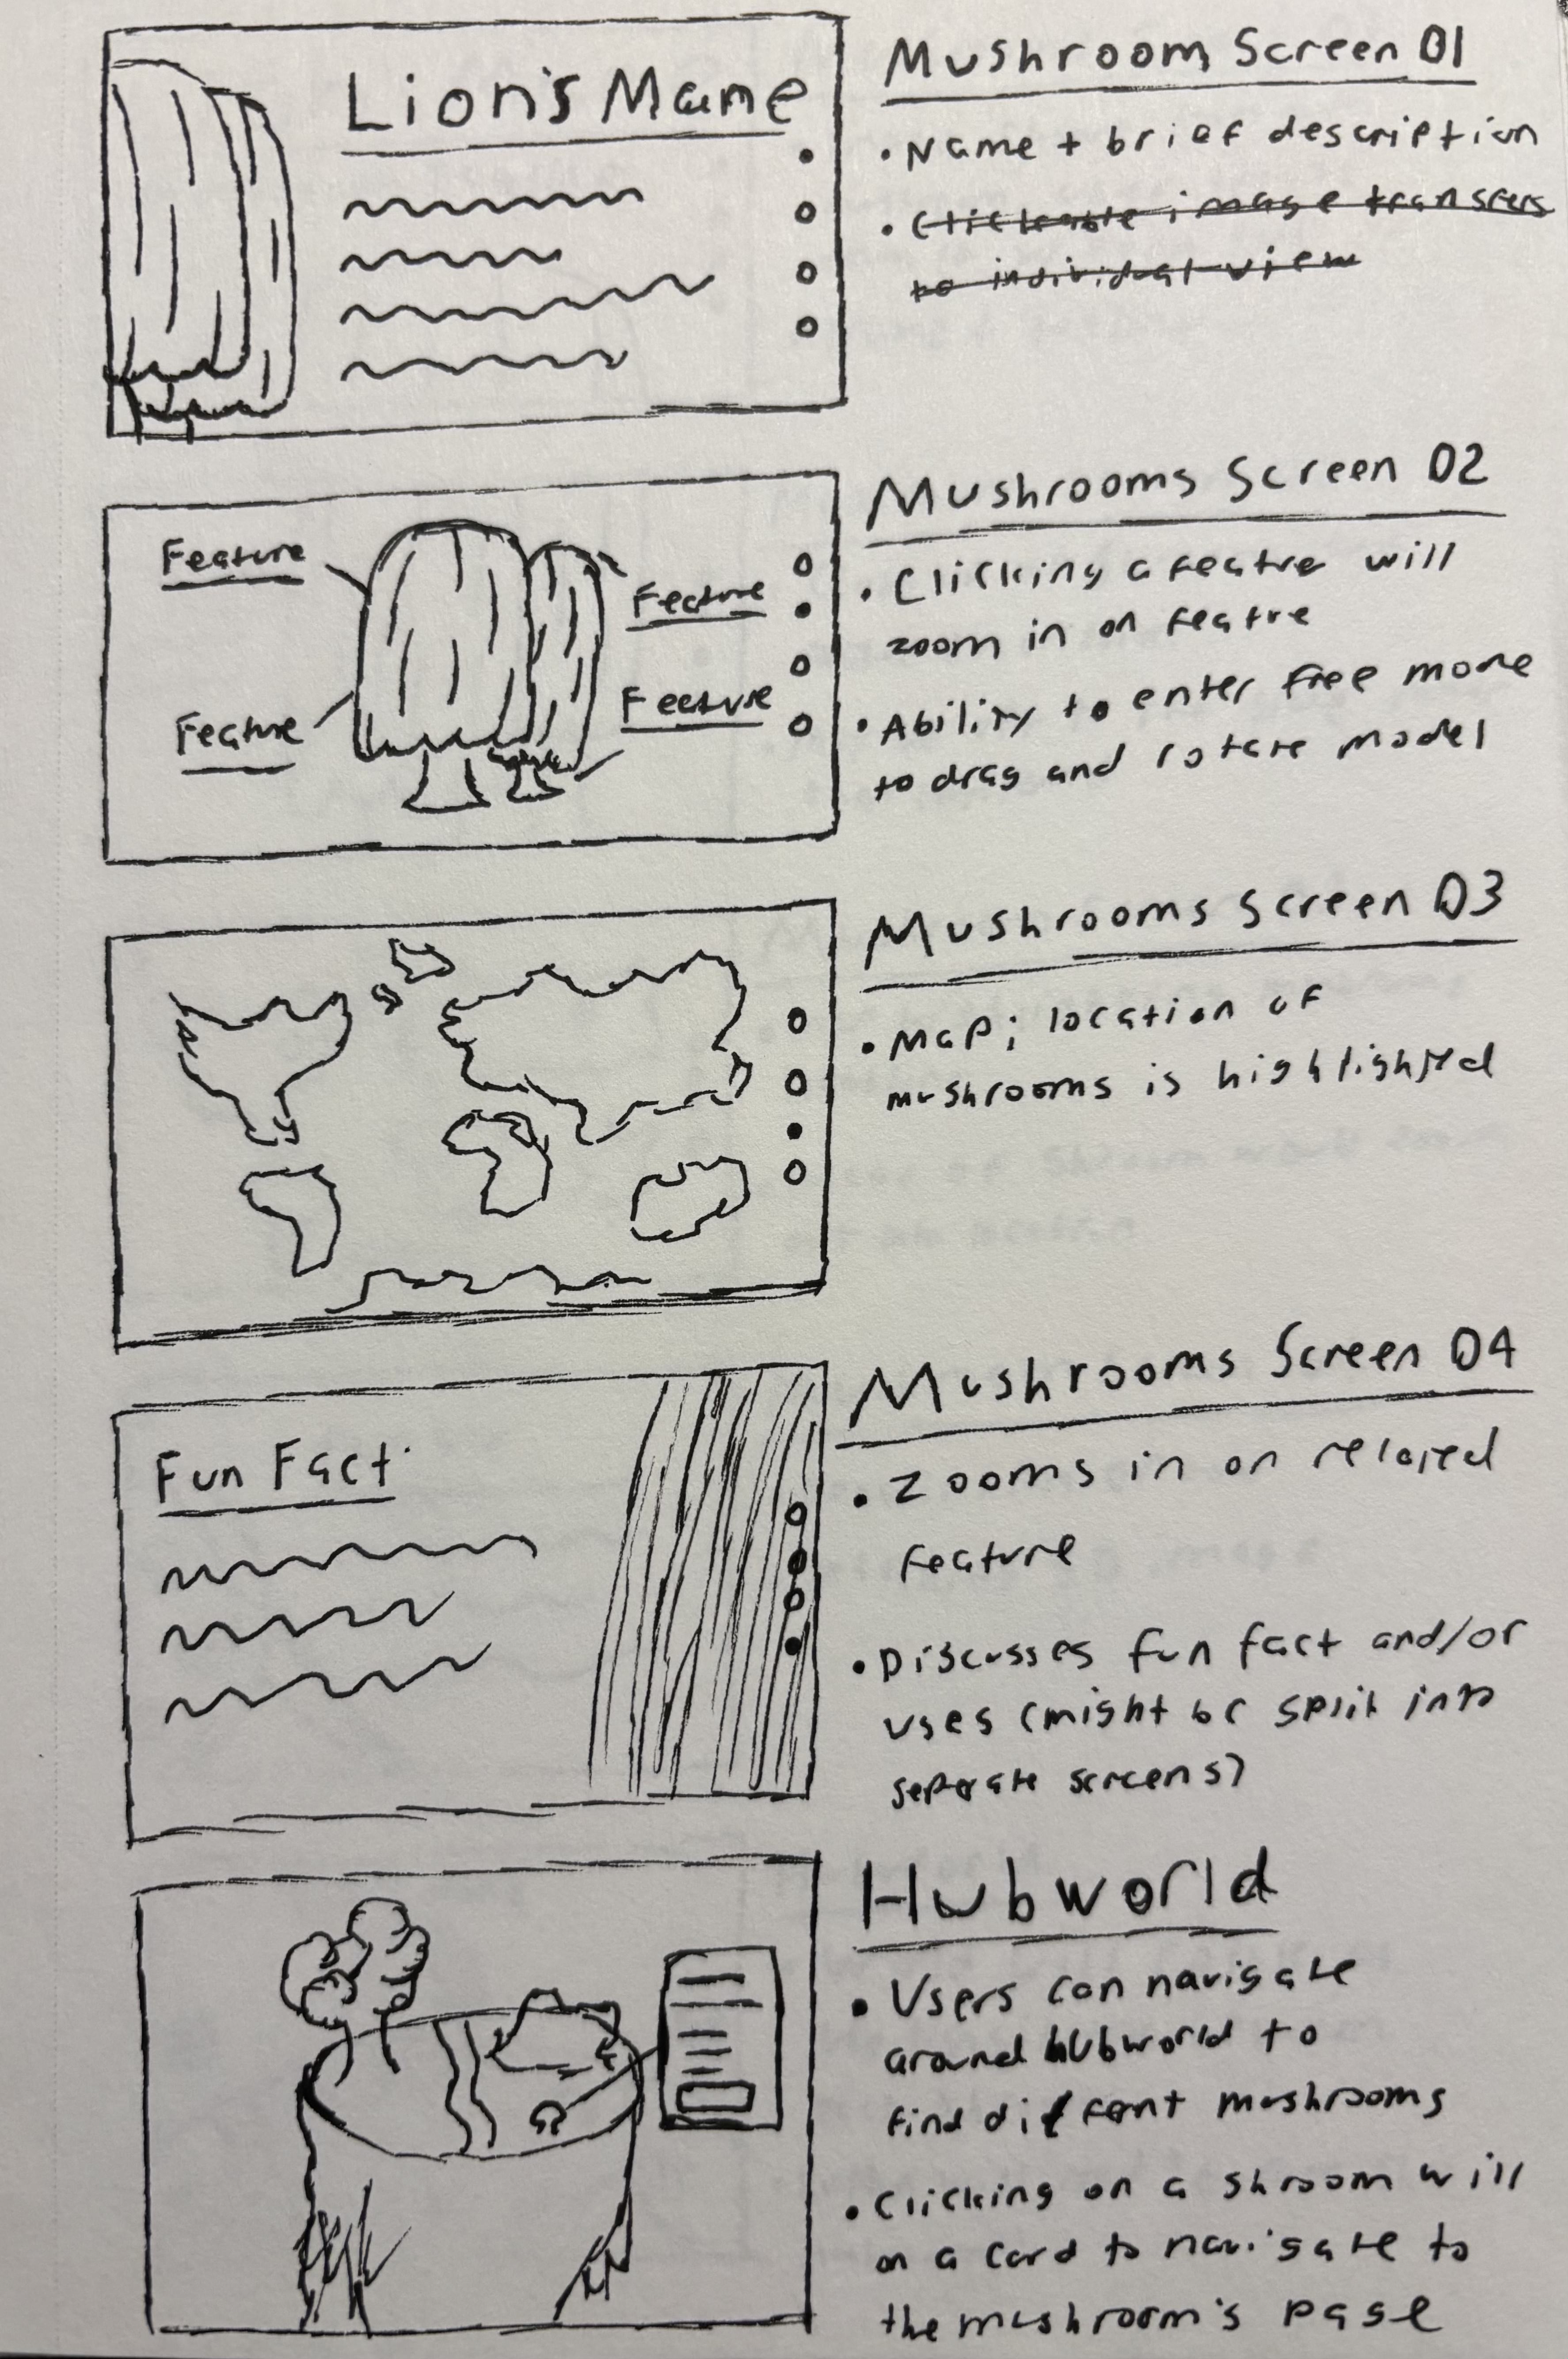 Lion's Mane
Mushroom Screen 01
• Name + brief description
• Clickable image transfers
to individual view
Mushrooms Screen 02
Feature
Feature
Feature
Feature
• Clicking a feature will
zoom in on featre
• Ability to enter free mode
to drag and rotate model
Mushrooms Screen 03
• Map; location of
mushrooms is highlighted
Mushrooms Screen 04
Fun Fact
• Zooms in on related
feature
• Discusses fun fact and/or
uses (might be split into
seperate screens)
Hubworld
• Users can navigate
around hubworld to
find different mushrooms
• Clicking on a shroom will
on a card to navigate to
the mushroom's page